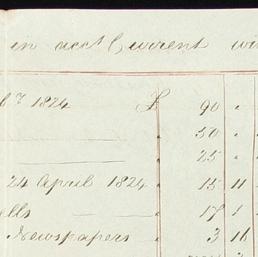 in acct Current
br 1824 £ 90 "
50 "
25 "
24 April 1824 15 11
ells 17 1
Newspapers 3 16